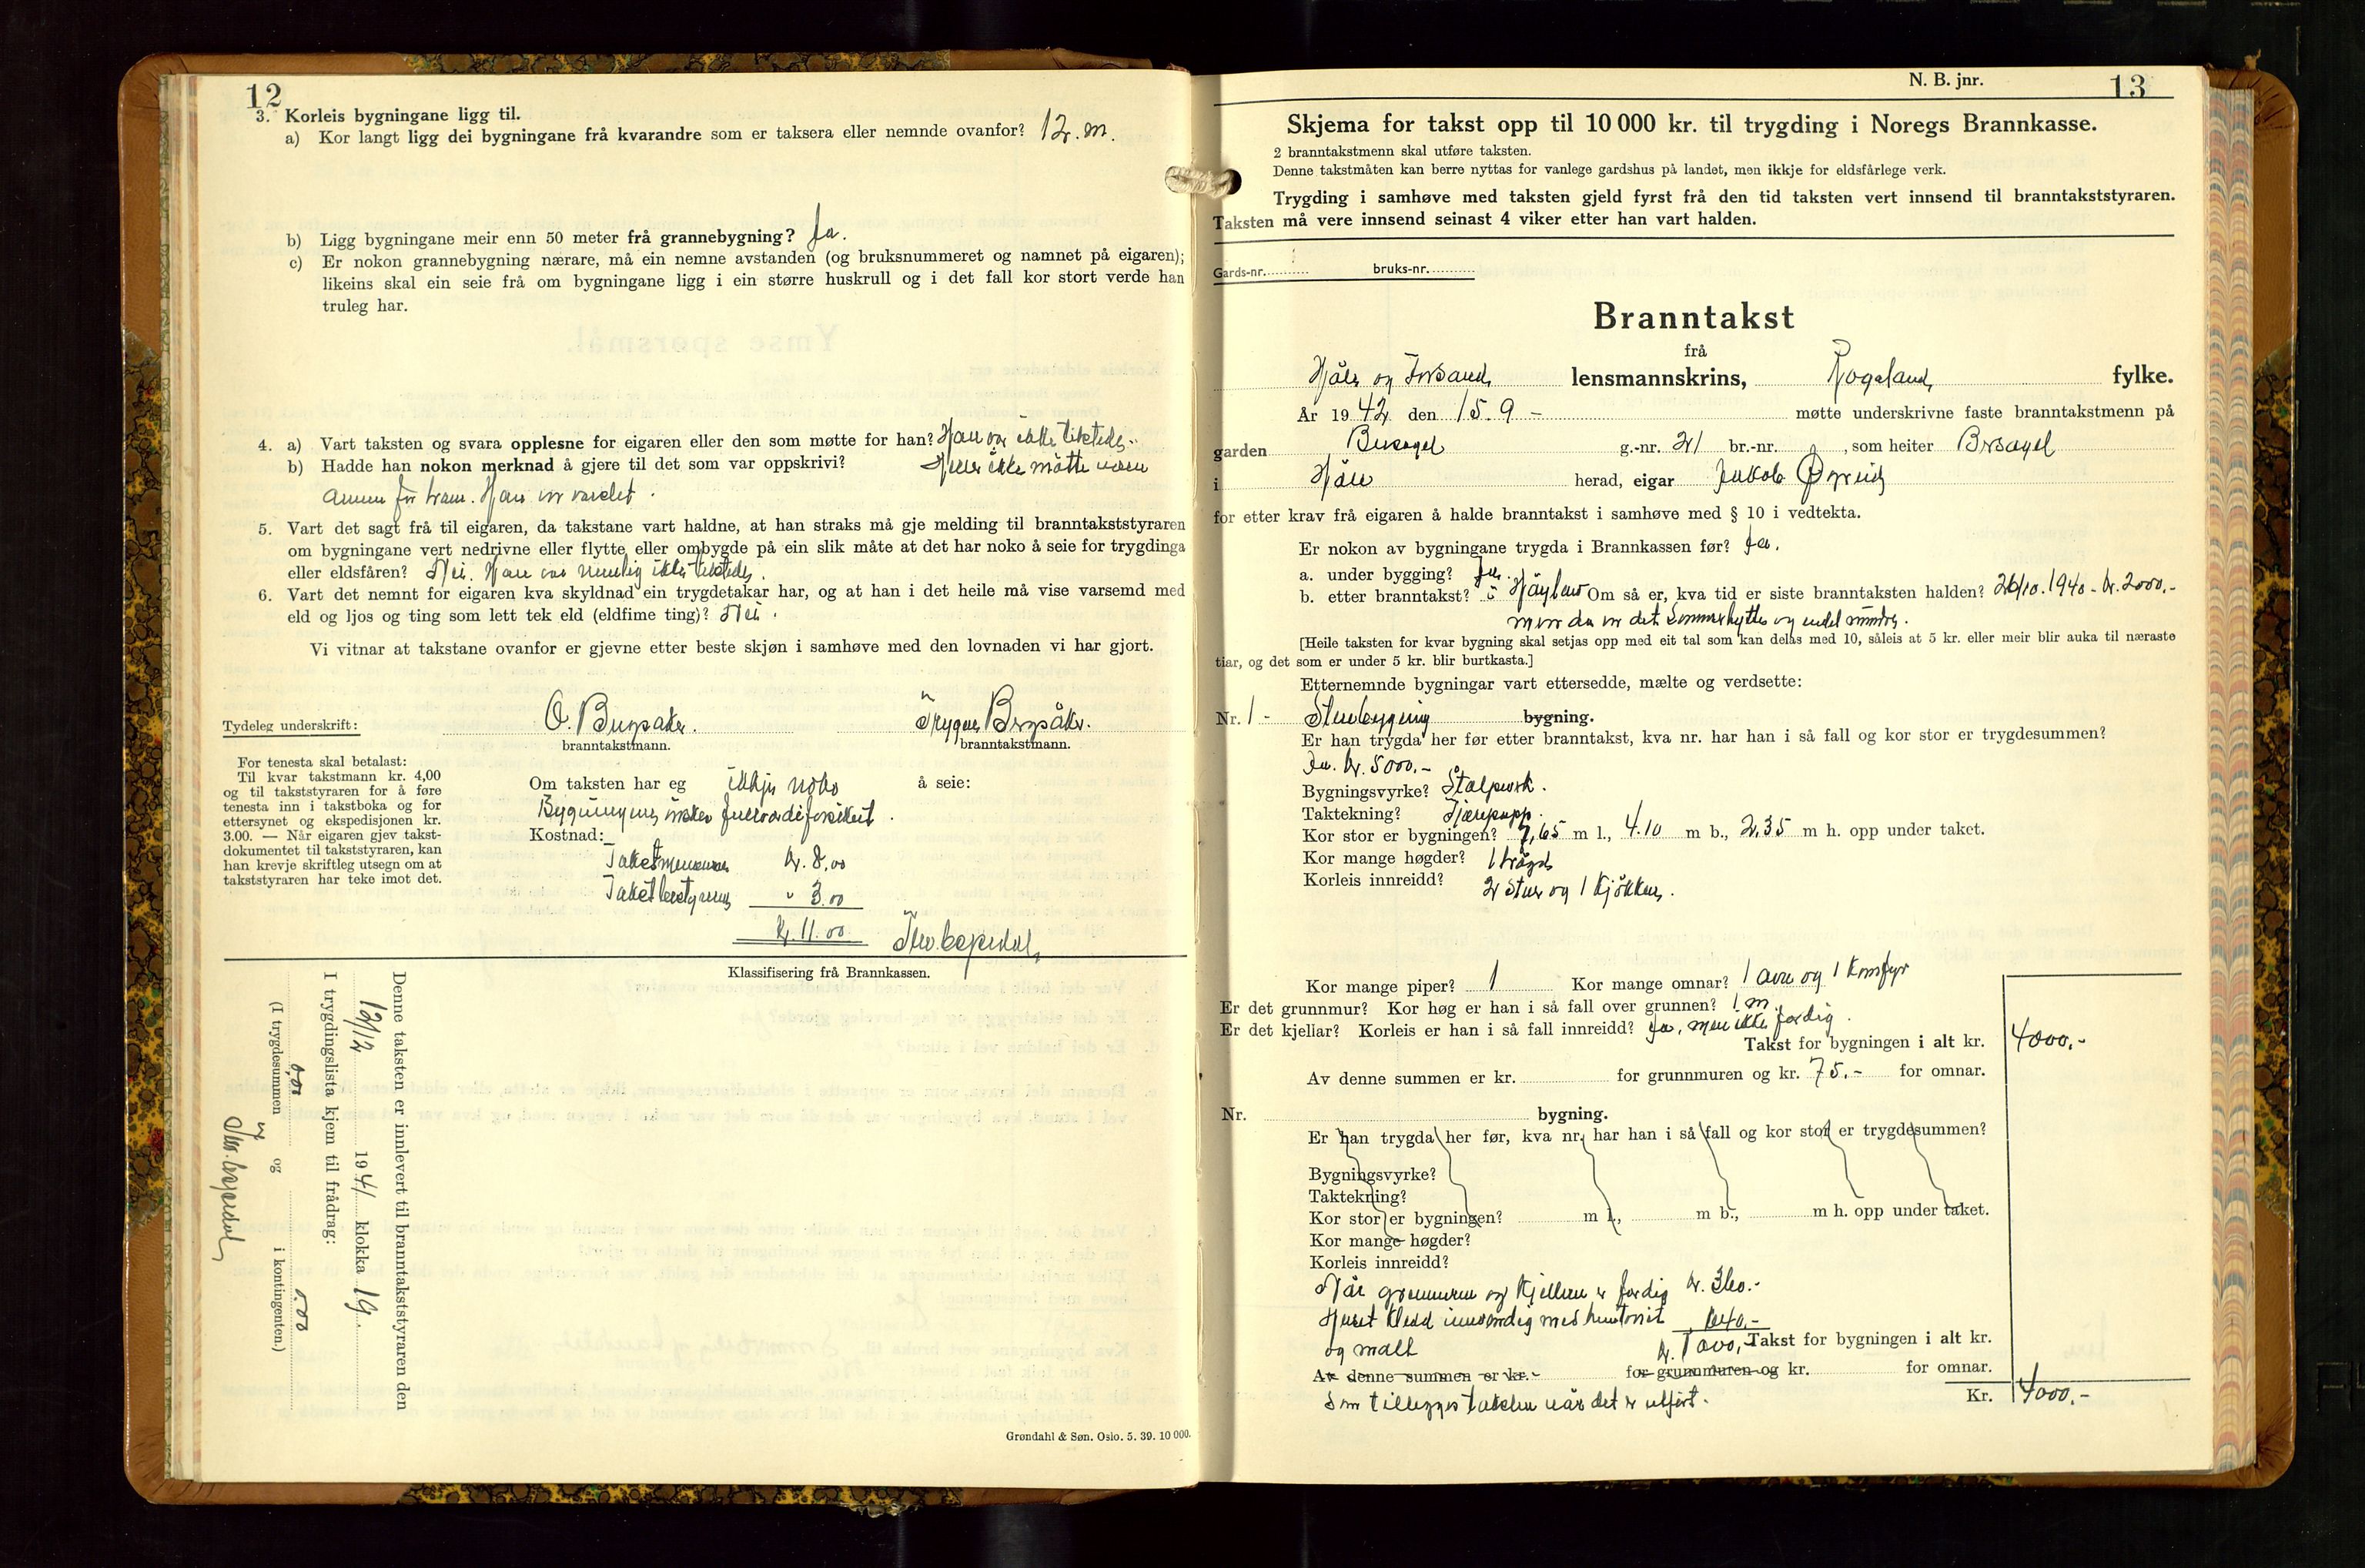 12
3. Korleis bygningane ligg til.
a) Kor langt ligg dei bygningane frå kvarandre som er taksera eller nemnde ovanfor? 12. m.
b) Ligg bygningane meir enn 50 meter frå grannebygning? Ja.
c) Er nokon grannebygning nærare, må ein nemne avstanden (og bruksnummeret og namnet på eigaren);
likeins skal ein seie frå om bygningane ligg i ein større huskrull og i det fall kor stort verde han
truleg har.
4. a) Vart taksten og svara opplesne for eigaren eller den som møtte for han? Han var ikke tilstede.
b) Hadde han nokon merknad å gjere til det som var oppskrivi? Heller ikke møtte noen
annen for ham. Han var varslet.
5. Vart det sagt frå til eigaren, da takstane vart haldne, at han straks må gje melding til branntakststyraren
om bygningane vert nedrivne eller flytte eller ombygde på ein slik måte at det har noko å seie for trygdinga
eller eldsfåren? Nei. Han var nemlig ikke tilstede.
6. Vart det nemnt for eigaren kva skyldnad ein trygdetakar har, og at han i det heile må vise varsemd med
eld og ljos og ting som lett tek eld (eldfime ting)? Nei.
Vi vitnar at takstane ovanfor er gjevne etter beste skjøn i samhøve med den lovnaden vi har gjort.
Tydeleg underskrift: O. Trygve
branntakstmann. branntakstmann.
For tenesta skal betalast:
Til kvar takstmann kr. 4,00
og til takststyraren for å føre
tenesta inn i takstboka og for
ettersynet og ekspedisjonen kr.
3.00. — Når eigaren gjev takst-
dokumentet til takststyraren, kan
han krevje skriftleg utsegn om at
takststyraren har teke imot det.
Om taksten har eg ikkje noko å seie:
Bygningene ønskes fullverdiforsikret.
Kostnad:
Takstmennene kr. 8,00
Takstbestyreren " 3.00
kr. 11.00
Klassifisering frå Brannkassen.
Denne taksten er innlevert til branntakststyraren den
12/12 1941 klokka 19.
I trygdingslista kjem til frådrag:
0,00 0.00
(I trygdesummen og i kontingenten.)
Grøndahl & Søn. Oslo. 5. 39. 10 000.
N. B. jnr. 13
Skjema for takst opp til 10 000 kr. til trygding i Noregs Brannkasse.
2 branntakstmenn skal utføre taksten.
Denne takstmåten kan berre nyttas for vanlege gardshus på landet, men ikkje for eldsfårlege verk.
Trygding i samhøve med taksten gjeld fyrst frå den tid taksten vert innsend til branntakststyraren.
Taksten må vere innsend seinast 4 viker etter han vart halden.
Gards-nr. bruks-nr.
Branntakst
frå
Hjåle og Forsand lensmannskrins, Rogaland fylke.
År 1942 den 15. 9 - møtte underskrivne faste branntakstmenn på
garden g.-nr. 21 br.-nr. , som heiter
i herad, eigar Jakob
for etter krav frå eigaren å halde branntakst i samhøve med § 10 i vedtekta.
Er nokon av bygningane trygda i Brannkassen før? Ja.
a. under bygging?
b. etter branntakst? Om så er, kva tid er siste branntaksten halden? 26/10. 1940 - kr. 2000.-
men da var det sommerhytte og endel mindre.
[Heile taksten for kvar bygning skal setjas opp med eit tal som kan delas med 10, såleis at 5 kr. eller meir blir auka til næraste
tiar, og det som er under 5 kr. blir burtkasta.]
Etternemnde bygningar vart ettersedde, mælte og verdsette:
Nr. 1 - Stuebygning bygning.
Er han trygda her før etter branntakst, kva nr. har han i så fall og kor stor er trygdesummen?
Ja. kr. 5000.-
Bygningsvyrke? Stolpverk.
Taktekning? Tjærepapp.
Kor stor er bygningen? 7,65 m l., 4.10 m b., 2,35 m h. opp under taket.
Kor mange høgder? 1 høgd
Korleis innreidd? 2 stuer og 1 kjøkken.
Kor mange piper? 1 Kor mange omnar? 1 ovn og 1 komfyr
Er det grunnmur? Kor høg er han i så fall over grunnen? 1 m.
Er det kjellar? Korleis er han i så fall innreidd? Ja, men ikke ferdig.
Takst for bygningen i alt kr. 4000.-
Av denne summen er kr. for grunnmuren og kr. 75.- for omnar.
Nr. bygning.
Er han trygda her før, kva nr. har han i så fall og kor stor er trygdesummen?
Bygningsvyrke?
Taktekning?
Kor stor er bygningen? m l., m b., m h. opp under taket.
Kor mange høgder?
Korleis innreidd?
Når grunnmuren og kjelleren er ferdig kr. 360.-
Huset kledd innvendig med huntonit 640.-
og malt kr. 1000,- Takst for bygningen i alt kr.
Av denne summen er kr. for grunnmuren og kr. for omnar.
som tilleggstaksten når det er utført.
Kr. 4000.-